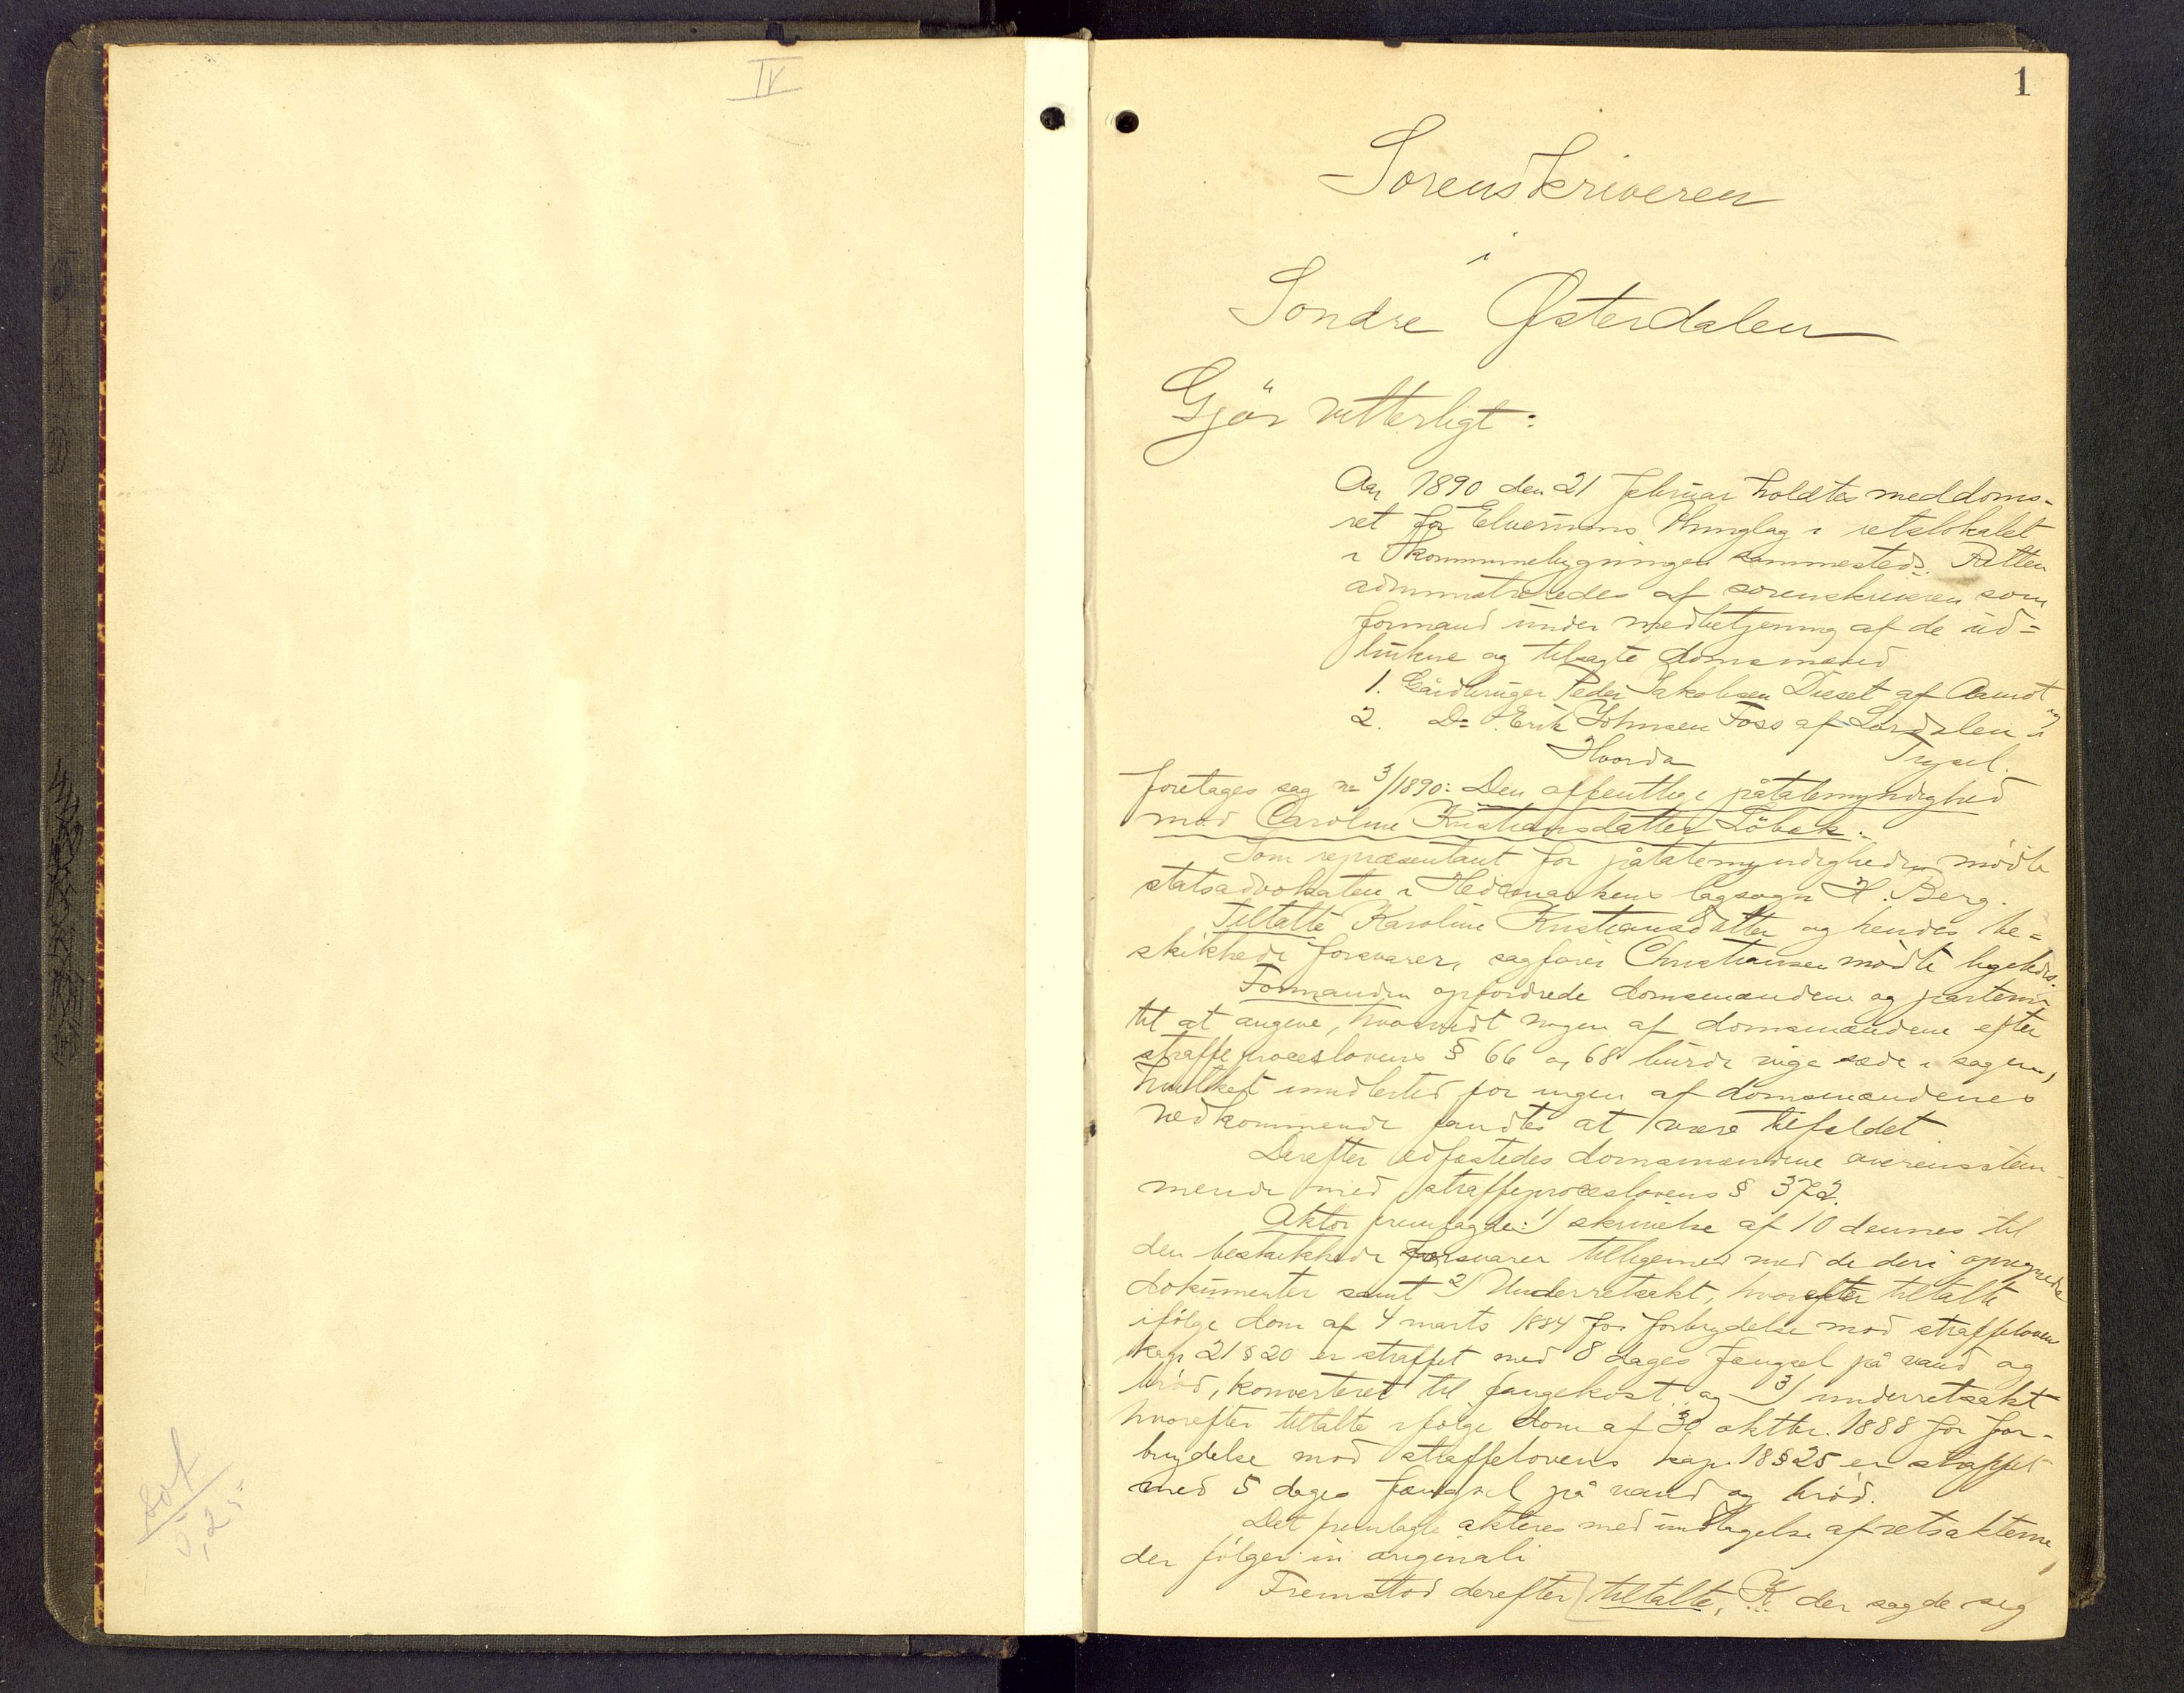 IV
1
Sorenskriveren
i
Søndre Østerdalen
Gjör vitterligt:
Aar 1890 den 21 februar holdtes meddoms-
ret for Elverums thinglag i retslokalet
i kommunebygningen sammesteds. Retten
administreredes af sorenskriveren som
formand under medbetjening af de ud-
trukne og tilsagte domsmænd
1. Gårdbruger Peder Jakobsen Deset af Aamot og
2. Do Erik Johnsen Foss af Lørdalen i
Hvorda Trysil.
foretages sag no 3/1890: Den offentlige påtalemyndighed
mod Caroline Kristiansdatter Löbak.
Som repræsentant for påtalemyndigheden mödte
statsadvokaten i Hedemarkens lagsogn H. Berg.
Tiltalte Karoline Kristiansdatter og hendes be-
skikkede forsvarer, sagförer Christiansen mödte ligeledes.
Formanden opfordrede domsmændene og parterne
til at angive, hvorvidt nogen af domsmændene efter
straffeproceslovens § 66 og 68 burde vige sæde i sagen,
hvilket imidlertid for ingen af domsmændenes
vedkommende fandtes at være tilfældet.
Derefter edfæstedes domsmændene overensstem-
mende med straffeproceslovens § 372.
Aktor fremlagde: 1/ skrivelse af 10 dennes til
den beskikkede forsvarer tilligemed med de deri opregnede
dokumenter samt 2/ Underretsakt, hvorefter tiltalte
ifölge dom af 4 marts 1884 for forbrydelse mod straffelovens
kap 21 § 20 er straffet med 8 dages fængsel på vand og
bröd, konverteret til fangekost og 3/ underretsakt
hvorefter tiltalte ifölge dom af 30 oktbr. 1888 for for-
brydelse mod straffelovens kap. 18 § 25 er straffet
med 5 dages fængsel på vand og bröd.
Det fremlagte akteres med undtagelse af retsakterne,
der fölger in originali
Fremstod derefter tiltalte, K der sagde sig